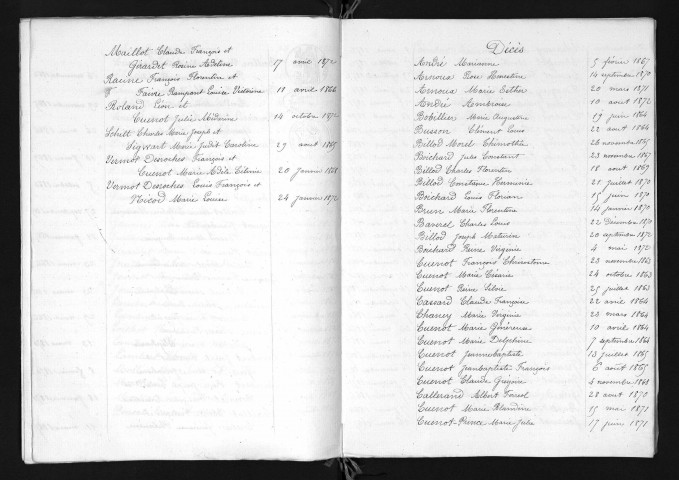 Maillot Claude François et
Girardet Rosine Adeline 17 avril 1872
Racine François Florentin et
Faivre Rampant Louise Victorine 18 avril 1866
Roland Léon et
Cuenot Julie Médorine 14 octobre 1872
Schitt Charles Marie Joseph et
Sigwart Marie Judit Caroline 29 août 1865
Vermot Desroches François et
Cuenot Marie Adèle Céline 20 janvier 1868
Vermot Desroches Louis François et
Nicod Marie Louise 24 janvier 1872
Décès
André Marianne 5 février 1867
Arnoux Rose Honorine 14 septembre 1870
Arnoux Marie Esther 20 mars 1871
André Ambroise 10 août 1872
Bobillier Marie Augustine 19 juin 1864
Busson Clément Louis 22 août 1864
Billod Morel Thimothée 26 novembre 1865
Boichard Jules Constant 23 novembre 1867
Billod Charles Florentin 18 août 1869
Billod Constance Herminie 21 juillet 1870
Boichard Louis Florian 15 juin 1870
Brun Marie Florentine 14 janvier 1870
Barnel Charles Louis 22 décembre 1870
Billod Joseph Maturin 20 septembre 1872
Boichard Reine Virginie 4 mai 1872
Cuenot François 23 novembre 1863
Cuenot Marie Césarie 24 octobre 1863
Cuenot Reine Silvie 25 juillet 1863
Cassard Claude François 22 avril 1864
Chaney Marie Virginie 23 mars 1864
Cuenot Marie Généreuse 10 avril 1864
Cuenot Marie Delphine 7 septembre 1864
Cuenot Jeannebaptiste 13 juillet 1865
Cuenot Jeanbaptiste François 6 août 1865
Cuenot Claude Grégoire 4 novembre 1868
Callerand Albert 28 août 1870
Cuenot Marie Blandine 15 mai 1871
Cuenot-Prince Marie Julie 17 juin 1871